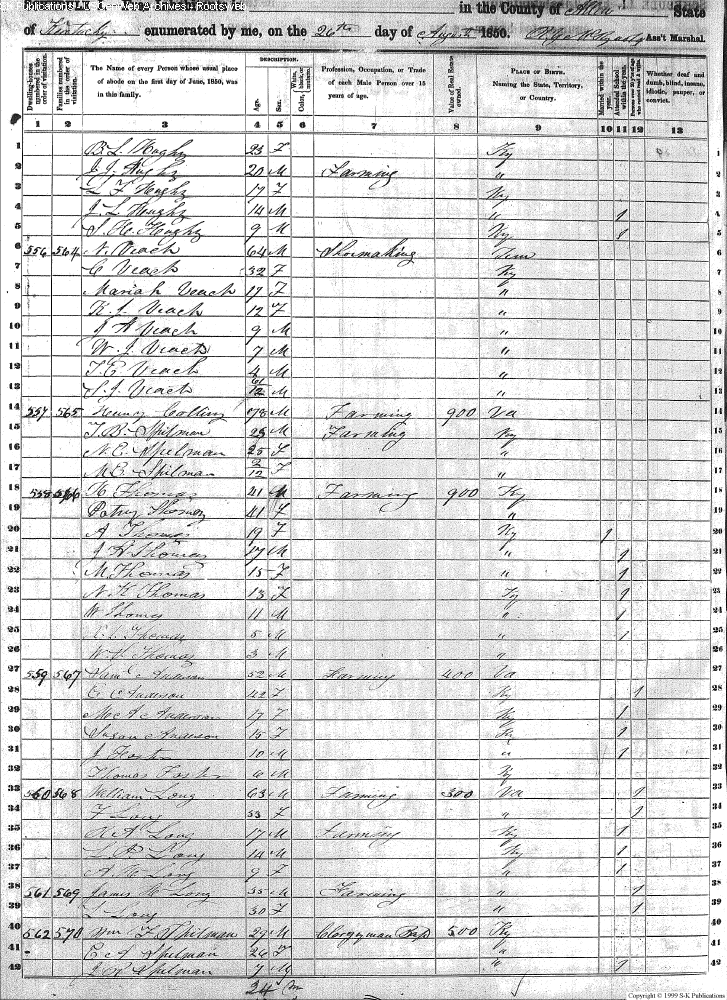 in the County of Allen State
of Kentucky enumerated by me, on the 26th day of August 1850. Ass't Marshal.
Dwelling-houses numbered in the order of visitation.
Families numbered in the order of visitation.
The Name of every Person whose usual place of abode on the first day of June, 1850, was in this family.
DESCRIPTION.
Age.
Sex.
Color, White, black, or mulatto.
Profession, Occupation, or Trade of each Male Person over 15 years of age.
Value of Real Estate owned.
PLACE OF BIRTH. Naming the State, Territory, or Country.
Married within the year.
Attended School within the year.
Whether deaf and dumb, blind, insane, idiotic, pauper, or convict.
1 2 3 4 5 6 7 8 9 10 11 12 13
1 B. L. Hughy 23 F Ky 1
2 J. J. Hughy 20 M Farming " 2
3 L F Hughy 17 F Ky 3
4 J L Hughy 14 M " 1 4
5 S. H. Hughy 9 M Ky 1 5
6 556 564 N. Veach 64 M Shoemaking Tenn 6
7 C Veach 32 F Ky 7
8 Mariah Veach 17 F " 8
9 K. J. Veach 12 F " 9
10 J A Veach 9 M " 10
11 W. J. Veach 7 M " 11
12 T. E. Veach 4 M " 12
13 S. J. Veach /12 M " 13
14 557 565 Henry Collins 78 M Farming 900 Va 14
15 T. B. Spilman 25 M Farming Ky 15
16 N. C. Spelman 25 F " 16
17 M. E. Spilman 2/12 F " 17
18 558 566 H. Thomas 41 M Farming 900 Ky 18
19 Patsy Thomas 41 F " 19
20 A Thomas 19 F Ky 1 20
21 J H Thomas 17 M " 1 21
22 M Thomas 15 F " 1 22
23 N. K Thomas 13 F Ky 1 23
24 W Thomas 11 M " 1 24
25 Thomas 5 M " 1 25
26 W. H. Thomas 3 M " 26
27 559 567 Anderson 52 M Farming 400 Va 27
28 C. C Anderson 42 F Ky 1 28
29 M. A. Anderson 17 F Ky 1 29
30 Susan Anderson 15 F Ky 1 30
31 J Foster 10 M " 1 31
32 Thomas Foster 6 M Ky 32
33 560 568 William Long 63 M Farming 300 Va 1 33
34 F Long 53 F " 1 34
35 A Long 17 M Farming Ky 1 35
36 Long 14 M Ky 1 36
37 A. M Long 9 F " 1 37
38 561 569 James W. Long 35 M Farming " 1 38
39 L Long 30 F " 1 39
40 562 570 Wm F. Spilman 27 M Clergyman Bap 500 Ky 40
41 C. A Spilman 26 F " 41
42 J. R Spilman 7 M " 1 42
24 m
Copyright © 1999 S-K Publications